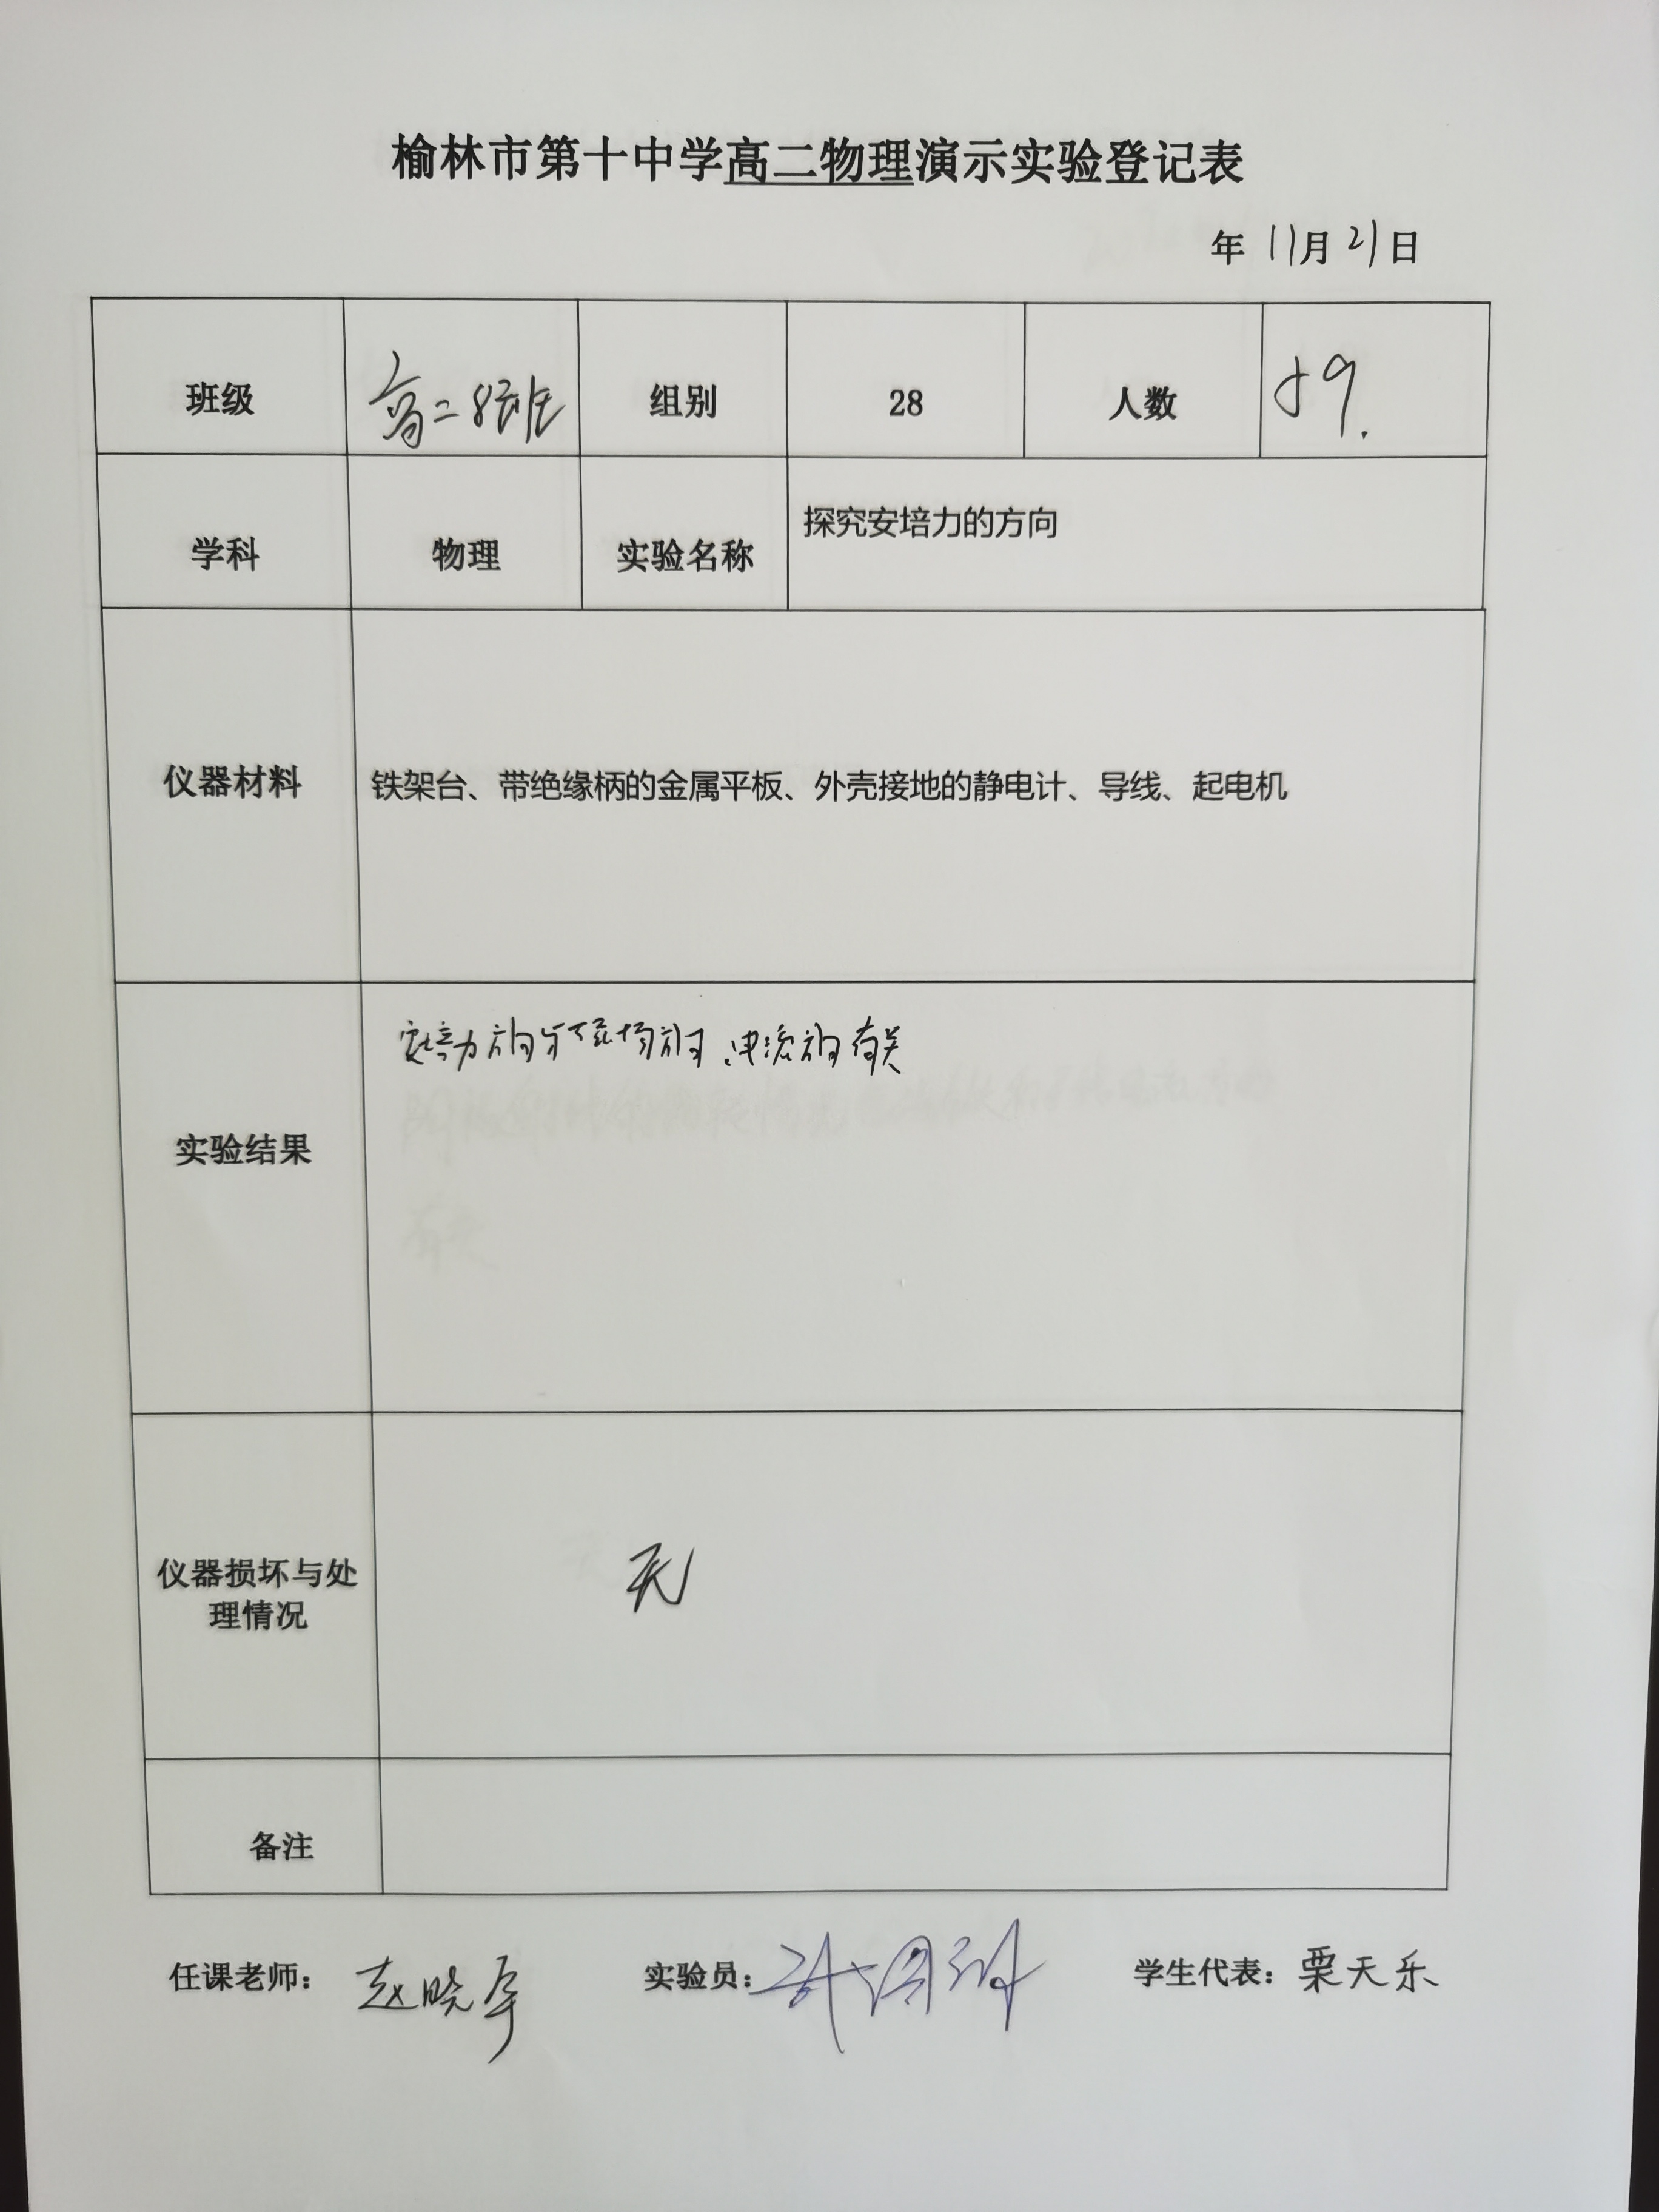 榆林市第十中学高二物理演示实验登记表
年 11月21日
班级 高二8班 组别 28 人数 59.
学科 物理 实验名称 探究安培力的方向
仪器材料 铁架台、带绝缘柄的金属平板、外壳接地的静电计、导线、起电机
实验结果 安培力方向与磁场方向、电流方向有关
仪器损坏与处
理情况 无
备注
任课老师: 赵晓军 实验员: 学生代表: 栗天乐